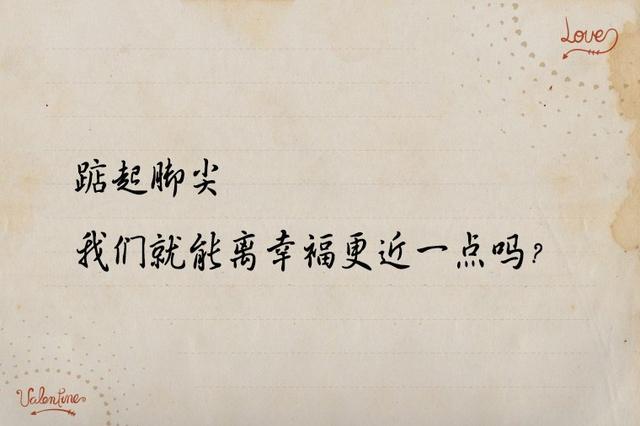 Love
踮起脚尖
我们就能离幸福更近一点吗?
Valentine